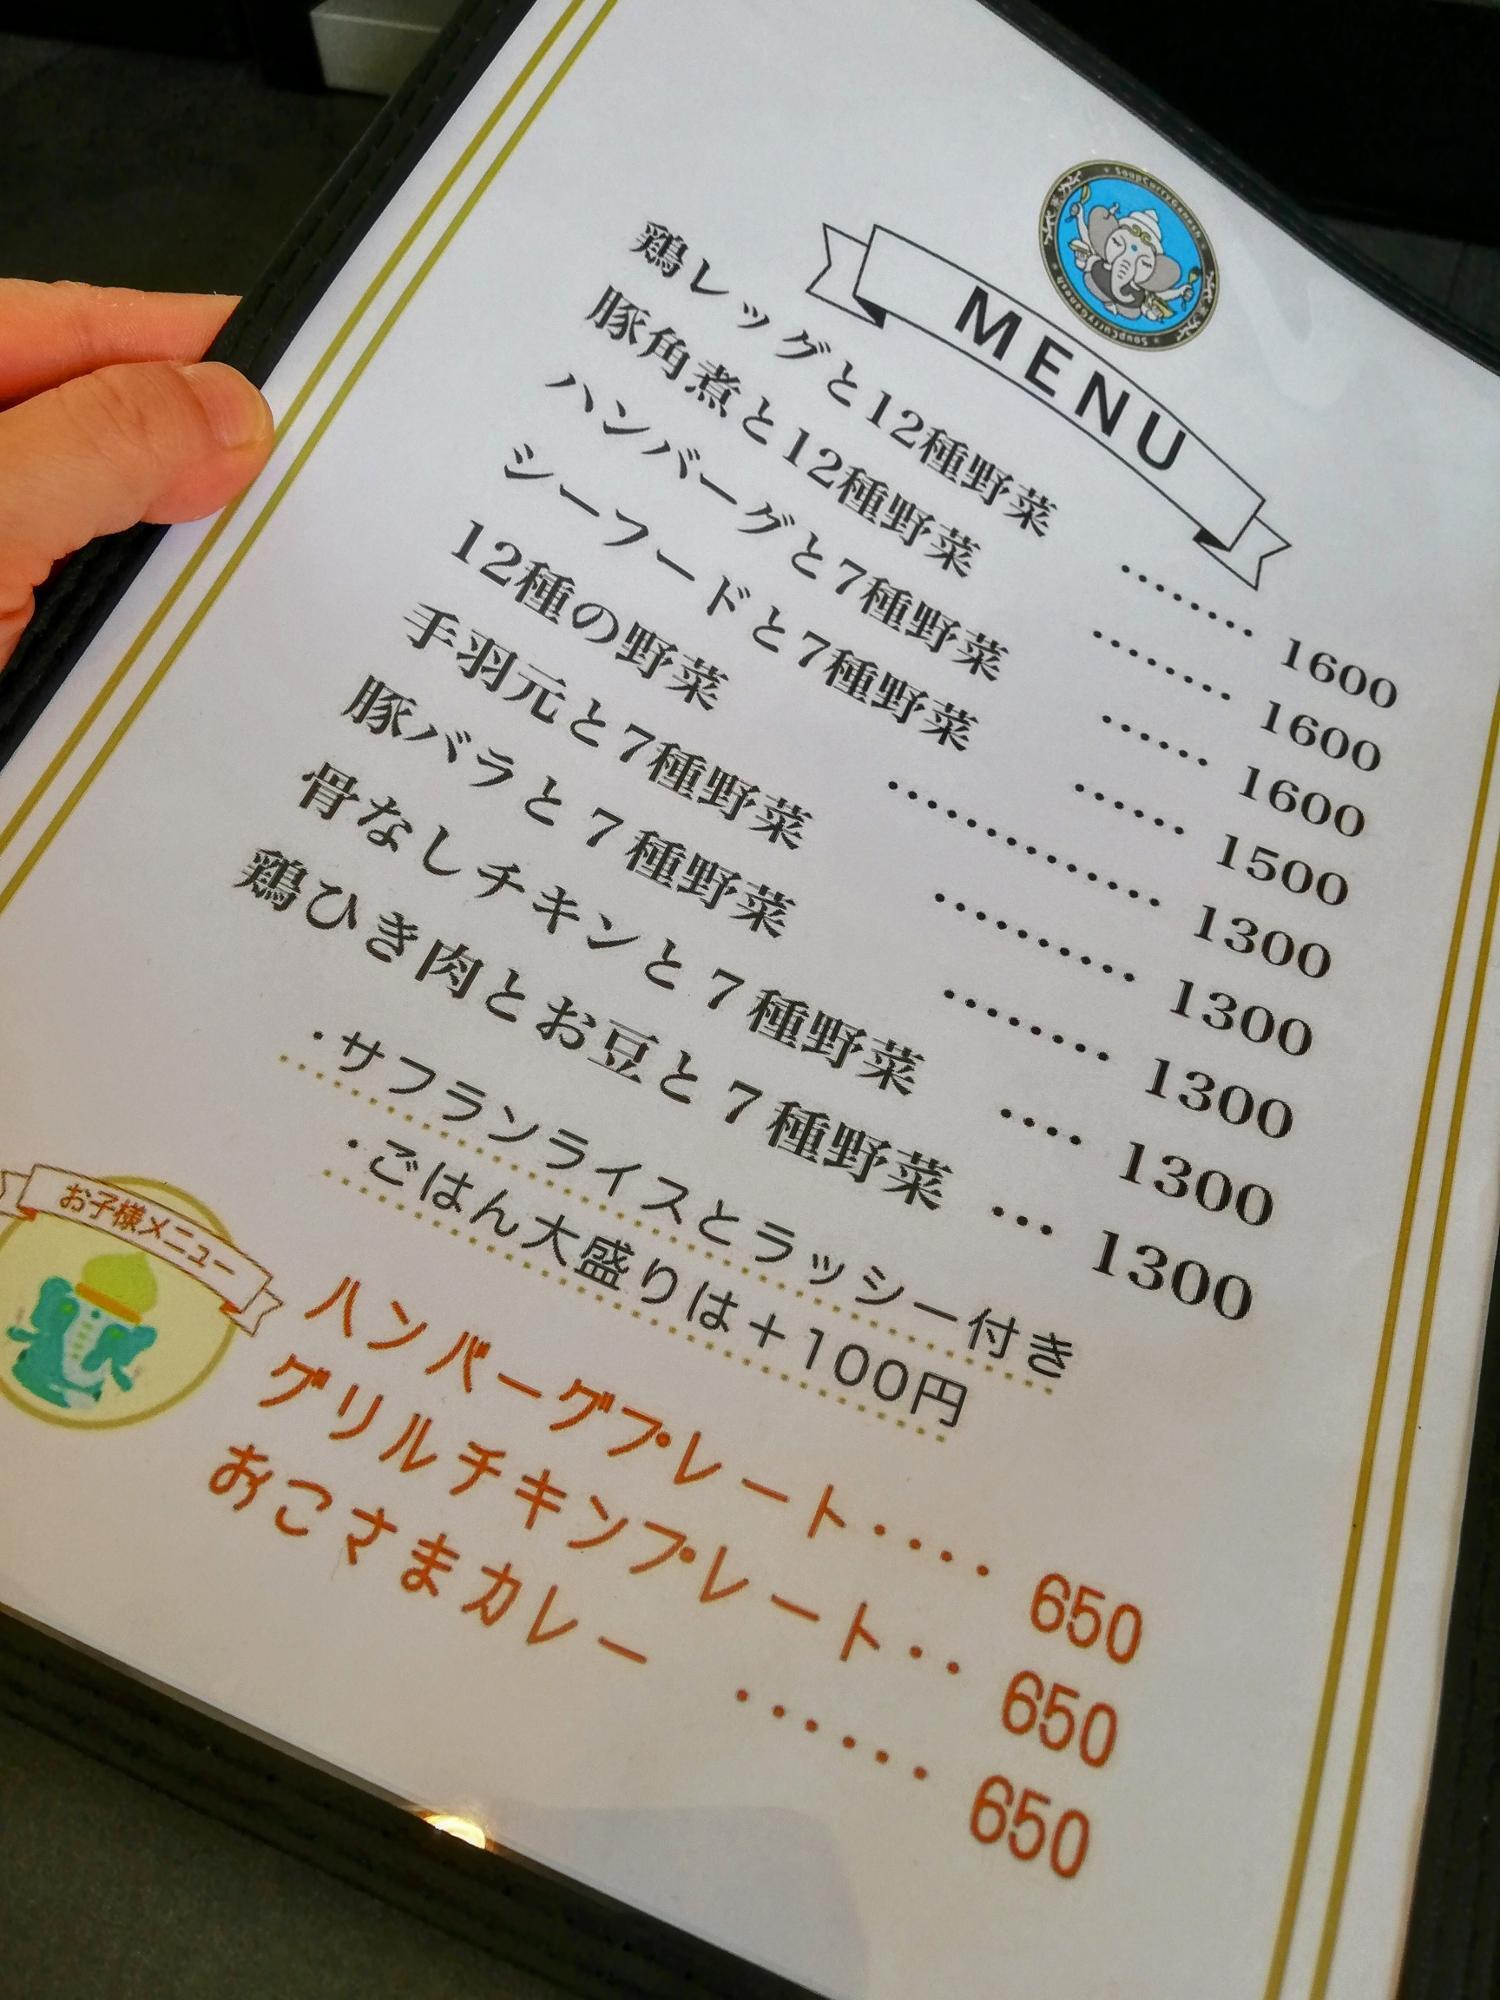 SoupCurryGanesh
MENU
鶏レッグと12種野菜 ········ 1600
豚角煮と12種野菜 ········ 1600
ハンバーグと7種野菜 ······ 1600
シーフードと7種野菜 ······ 1500
12種の野菜 ·············· 1300
手羽元と7種野菜 ·········· 1300
豚バラと７種野菜 ········ 1300
骨なしチキンと７種野菜 ···· 1300
鶏ひき肉とお豆と７種野菜 ··· 1300
・サフランライスとラッシー付き
・ごはん大盛りは＋100円
お子様メニュー
ハンバーグプレート···· 650
グリルチキンプレート·· 650
おこさまカレー ······ 650